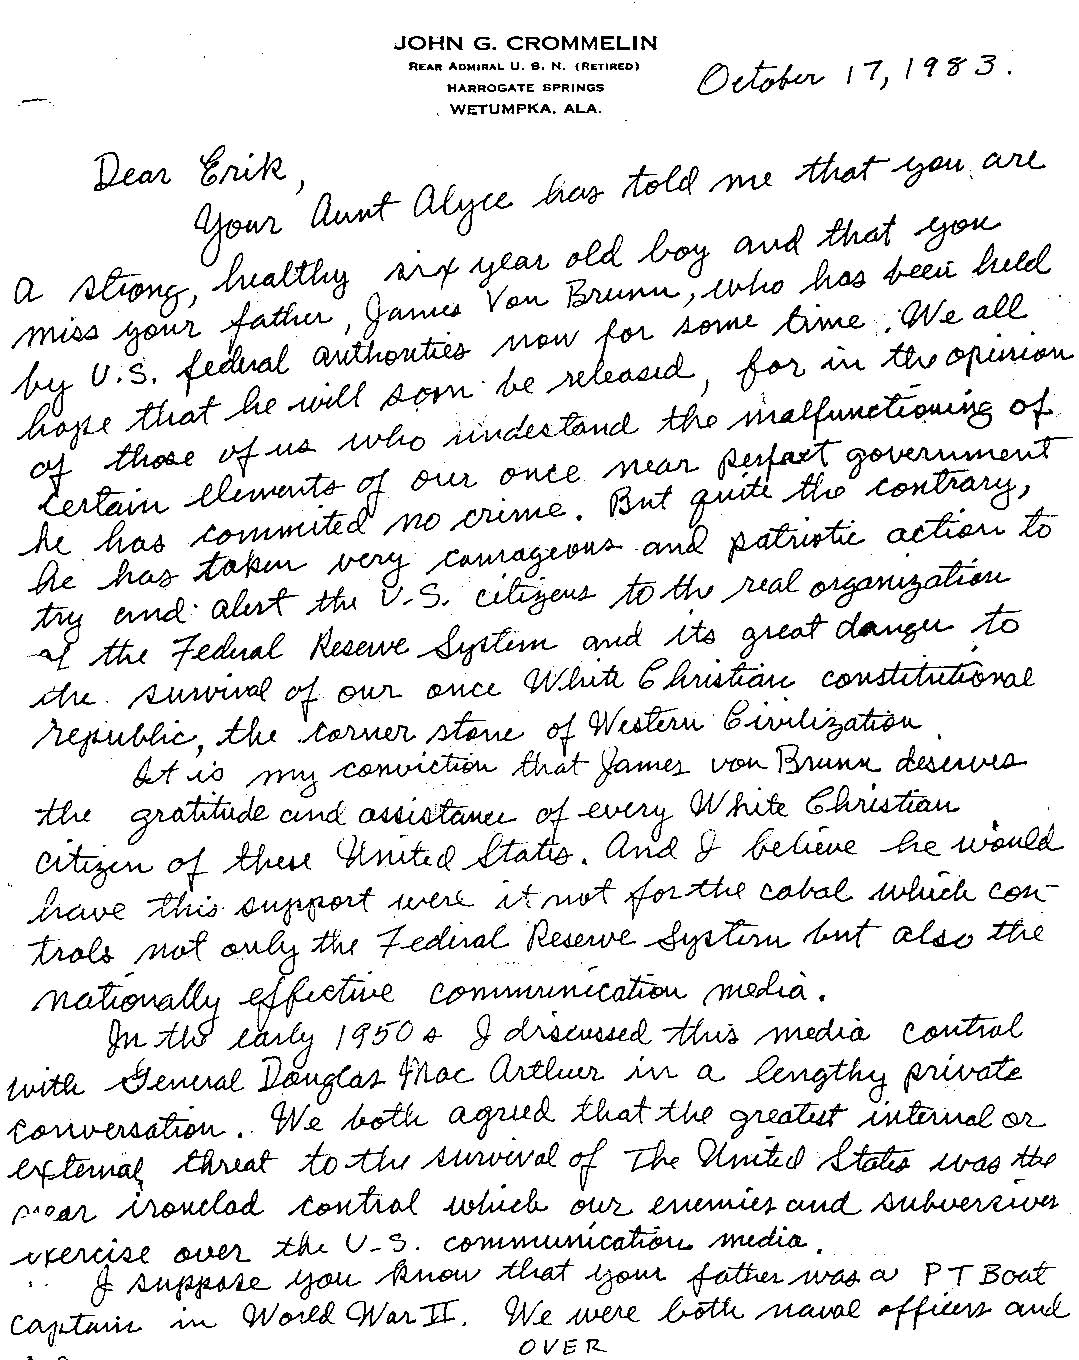 JOHN G. CROMMELIN
REAR ADMIRAL U. S. N. (RETIRED)
HARROGATE SPRINGS
WETUMPKA, ALA.
October 17, 1983.
Dear Erik,
Your Aunt Alyce has told me that you are
a strong, healthy six year old boy and that you
miss your father, James Von Brunn, who has been held
by U.S. federal authorities now for some time. We all
hope that he will soon be released, for in the opinion
of those of us who understand the malfunctioning of
certain elements of our once near perfect government
he has commited no crime. But quite the contrary,
he has taken very courageous and patriotic action to
try and alert the U.S. citizens to the real organization
of the Federal Reserve System and its great danger to
the survival of our once White Christian constitutional
republic, the corner stone of Western Civilization
It is my conviction that James von Brunn deserves
the gratitude and assistance of every White Christian
citizen of these United States. And I believe he would
have this support were it not for the cabal which con-
trols not only the Federal Reserve System but also the
nationally effective communication media.
In the early 1950s I discussed this media control
with General Douglas Mac Arthur in a lengthy private
conversation. We both agreed that the greatest internal or
external threat to the survival of The United States was the
near ironclad control which our enemies and subversives
exercise over the U.S. communication media.
I suppose you know that your father was a PT Boat
Captain in World War II. We were both naval officers and
OVER